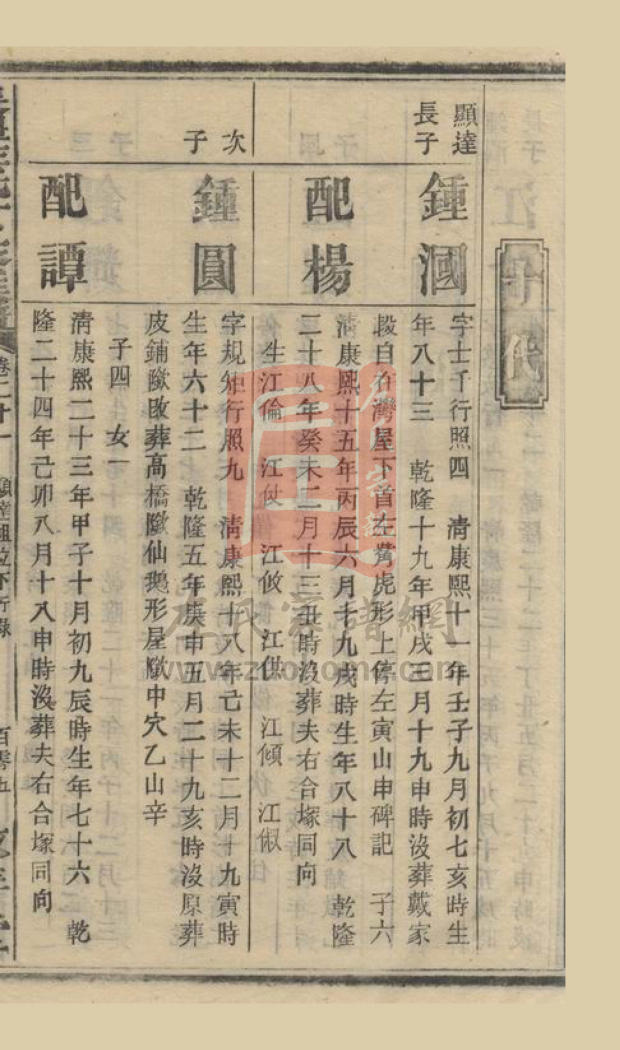 十代
顯達
長子
鍾涸
字士千行照四 淸康熙十一年壬子九月初七亥時生
年八十三 乾隆十九年甲戌三月十九申時沒葬戴家
段自在灣屋下首左嘴虎形上停左寅山申碑記 子六
配楊
淸康熙十五年丙辰六月十九戌時生年八十八 乾隆
二十八年癸未二月十三丑時沒葬夫右合塚同向
生江倫 江伩 江攸 江供 江傾 江俶
次
子
鍾圓
字規矩行照九 淸康熙十八年己未十二月十九寅時
生年六十二 乾隆五年庚申五月二十九亥時沒原葬
皮鋪墩改葬高橋墩仙鵝形屋墩中穴乙山辛
子四 女一
配譚
淸康熙二十三年甲子十月初九辰時生年七十六 乾
隆二十四年己卯八月十八申時沒葬夫右合塚同向
卷二十一
顯達祖位下齒錄
百零五
www.zhohome.com